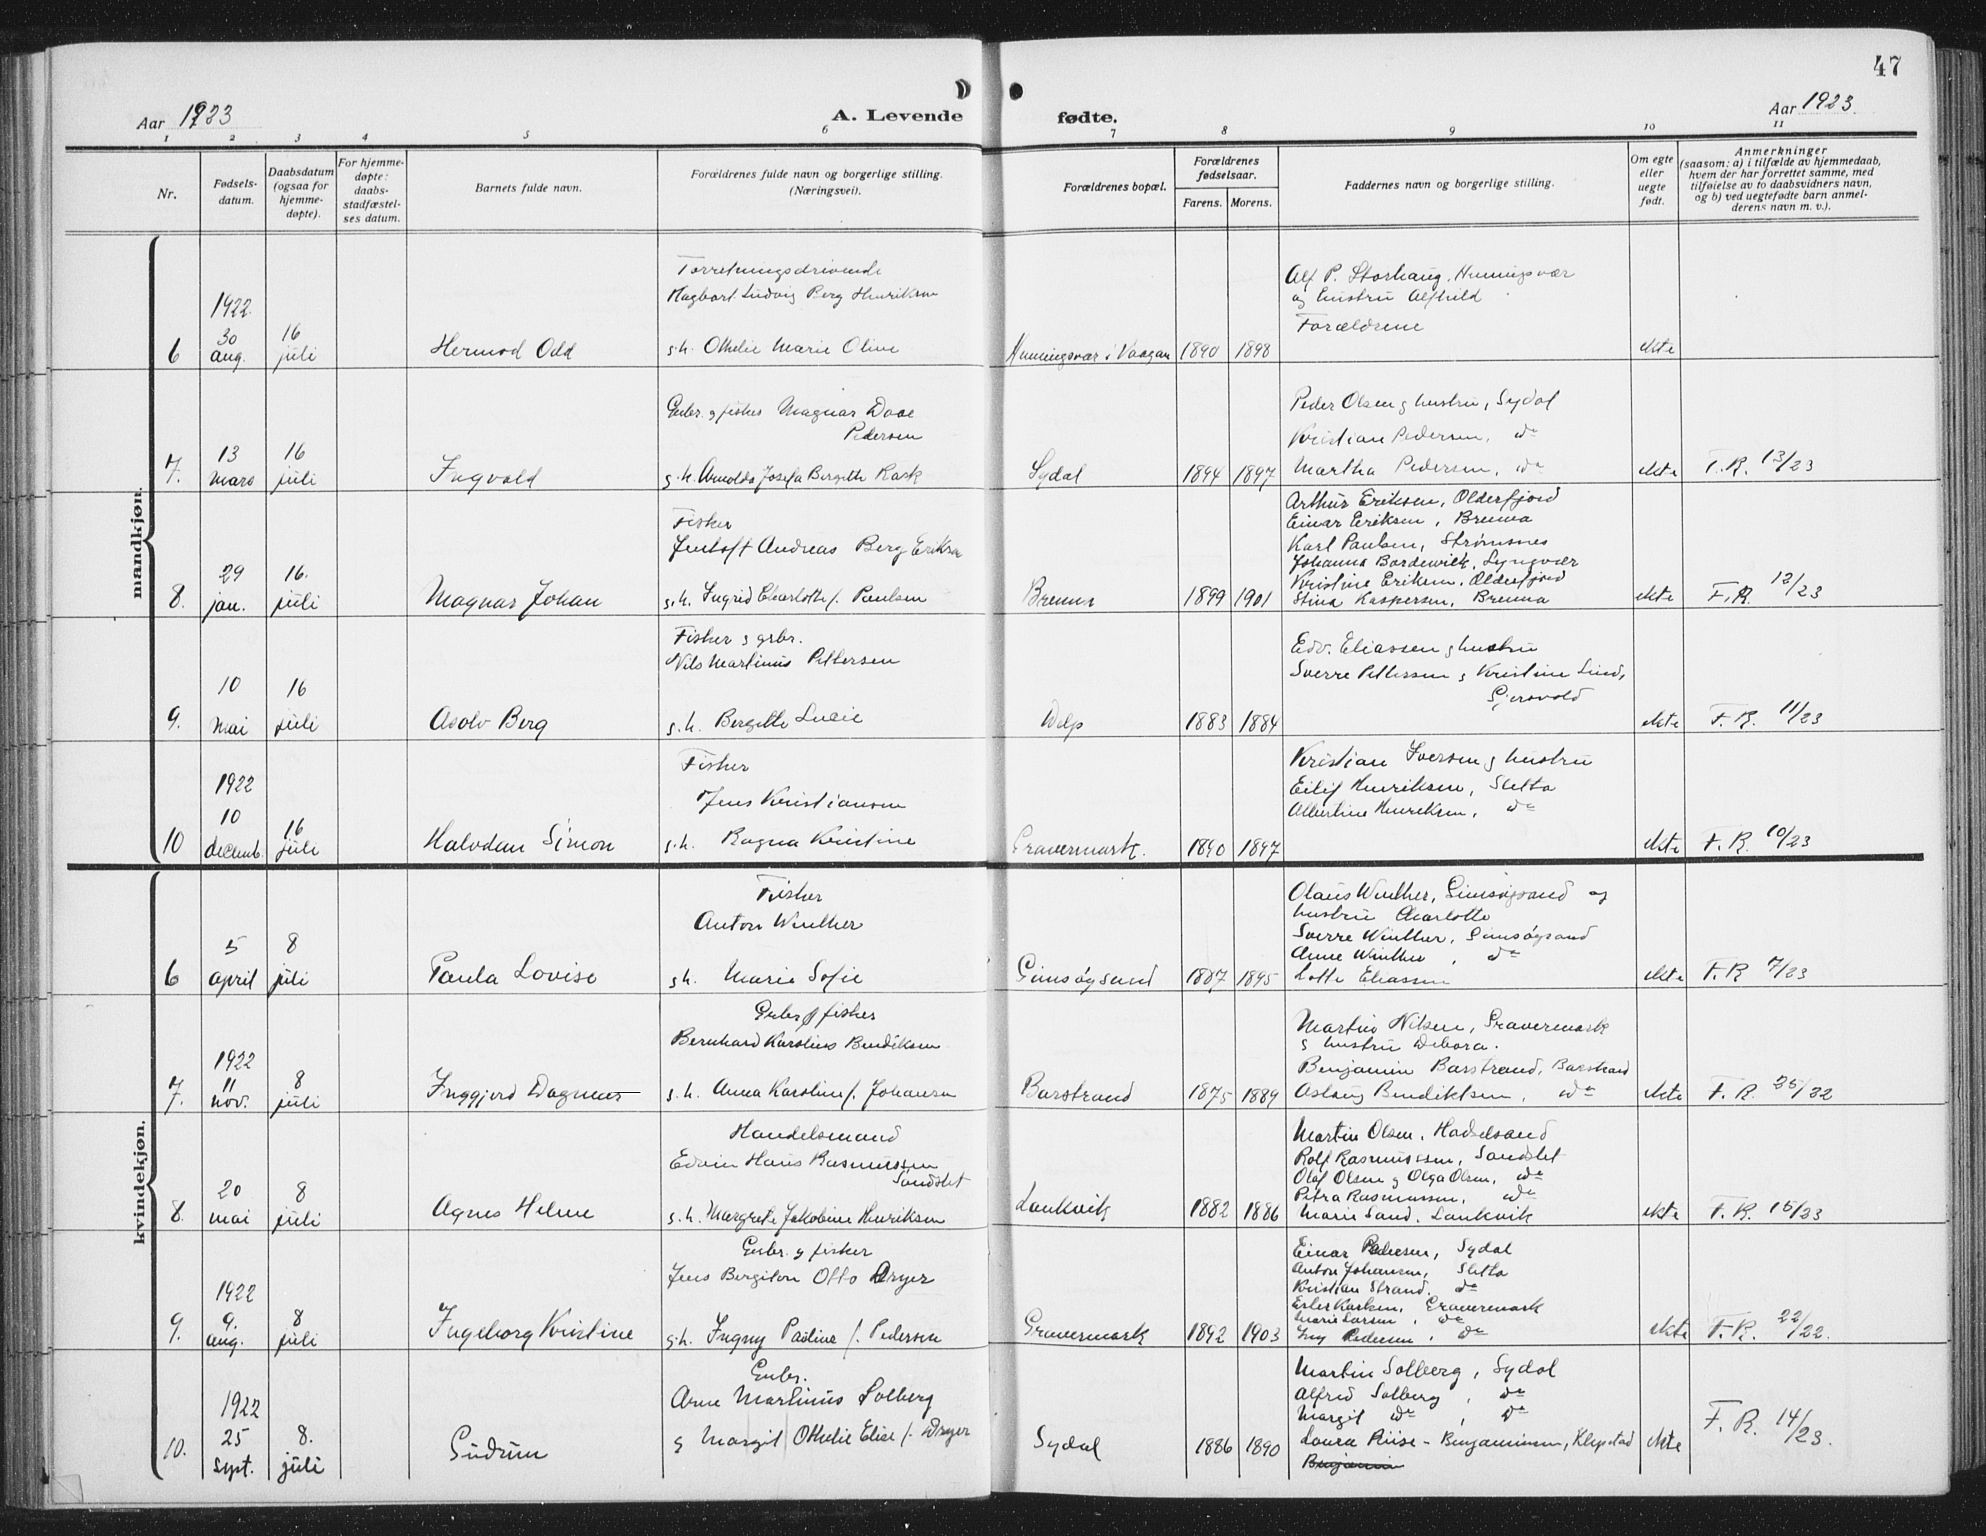 47
Aar 1923
A. Levende
fødte.
Aar 1923
1 2 3 4 5 6 7 8 9 10 11
Nr.
Fødsels-
datum.
Daabsdatum
(ogsaa for
hjemme-
døpte).
For hjemme-
døpte:
daabs-
stadfæstel-
ses datum.
Barnets fulde navn.
Forældrenes fulde navn og borgerlige stilling.
(Næringsvei).
Forældrenes bopæl.
Forældrenes
fødselsaar.
Farens. Morens.
Faddernes navn og borgerlige stilling.
Om egte
eller
uegte
født.
Anmerkninger
(saasom: a) i tilfælde av hjemmedaab,
hvem der har forrettet samme, med
tilføielse av to daabsvidners navn,
og b) ved uegtefødte barn anmel-
derens navn m. v.).
mandkjøn.
6
1922.
30
aug.
16
juli
Hermod Odd
Forretningsdrivende
Hagbart Ludvig Berg Henriksen
g.h. Othelie Marie Oline
Henningsvær i Vaagan
1890 1898
Alf P. Storhaug, Henningsvær
og hustru Alfhild
Forældrene
ekte
7.
13
mars
16
juli
Ingvald
Gbr. g fisker Magnar Daae
Pedersen
g.h. Arnolda Josefa Bergitte Rask
Sydal
1894 1897
Peder Olsen g hustru, Sydal
Kristian Pedersen, do
Martha Pedersen, do
ekte
F.R. 13/23
8.
29
jan.
16.
juli
Magnar Johan
Fisker
Jentoft Andreas Berg Eriksen
g.h. Ingrid Charlotte f. Paulsen
Brenna
1899 1901
Arthur Eriksen, Olderfjord
Einar Eriksen, Brenna
Karl Paulsen, Strømsnes
Johanna Bordewick, Lyngvær
Kristine Eriksen, Olderfjord
Stina Kaspersen, Brenna
ekte
F.R. 12/23
9.
10
mai
16
juli
Asolv Berg
Fisker g grbr.
Nils Martinus Pettersen
g.h. Bergitte Lucie
Delp
1883 1884
Edv. Eliassen g hustru
Sverre Pettersen g Kristine Lind,
Gjersvold
ekte
F.R. 11/23
10
1922
10
decemb.
16
juli
Halvdan Simon
Fisker
Jens Kristiansen
g.h. Ragna Kristine
Gravermark.
1890 1897
Kristian Iversen g hustru
Eilif Henriksen, Sletta
Albertine Henriksen, do
ekte
F.R. 10/23
kvindekjøn.
6
5
april
8
juli
Paula Lovise
Fisker
Anton Winther
gh. Marie Sofie
Gimsøysand
1887 1895
Olaus Winther, Gimsøysand og
hustru Charlotte
Sverre Winther, Gimsøysand
Anne Winther, do
Lotte Eliassen
ekte
F.R 7/23
7.
1922
11
nov.
8
juli
Inggjerd Dagmar
Gbr. g fisker
Bernhard Karolius Bendiksen
g.h. Anna Karoline f. Johansen
Barstrand
1875 1889
Martin Nilsen, Gravermark
g hustru Debora.
Benjamin Barstrand, Barstrand
Aslaug Bendiktsen, do
ekte
F.R. 25/22
8.
20
mai
8
juli
Agnes Helene
Handelsmand
Edvin Hans Rasmussen
Sandslet
g.h. Margrete Jakobine Henriksen
Laukvik
1882 1886
Martin Olsen, Hadselsand
Rolf Rasmussen, Sandslet
Olaf Olsen g Olga Olsen, do
Petra Rasmussen, do
Marie Sand, Laukvik
ekte
F.R. 15/23
9.
1922
9.
aug.
8
juli
Ingeborg Kristine
Gbr. g fisker
Jens Bergiton Otto Dryer
g.h. Ingny Pauline f. Pedersen
Gravermark
1892 1903
Einar Pedersen, Sydal
Anton Johansen, Sletta
Kristian Strand, do
Karlsen, Gravermark
Marie Larsen, do
Pedersen, do
ekte
F.R. 22/22.
10.
1922
25
sept.
8.
juli
Gudrun
Gbr.
Arne Martinus Solberg
g Margit Othelie Elise f. Dryer
Sydal
1886 1890
Martin Solberg, Sydal
Alfred Solberg, do
Margit do, do
Laura Riise - Benjaminsen, Klepstad
Benjamin
ekte
F.R. 14/23.